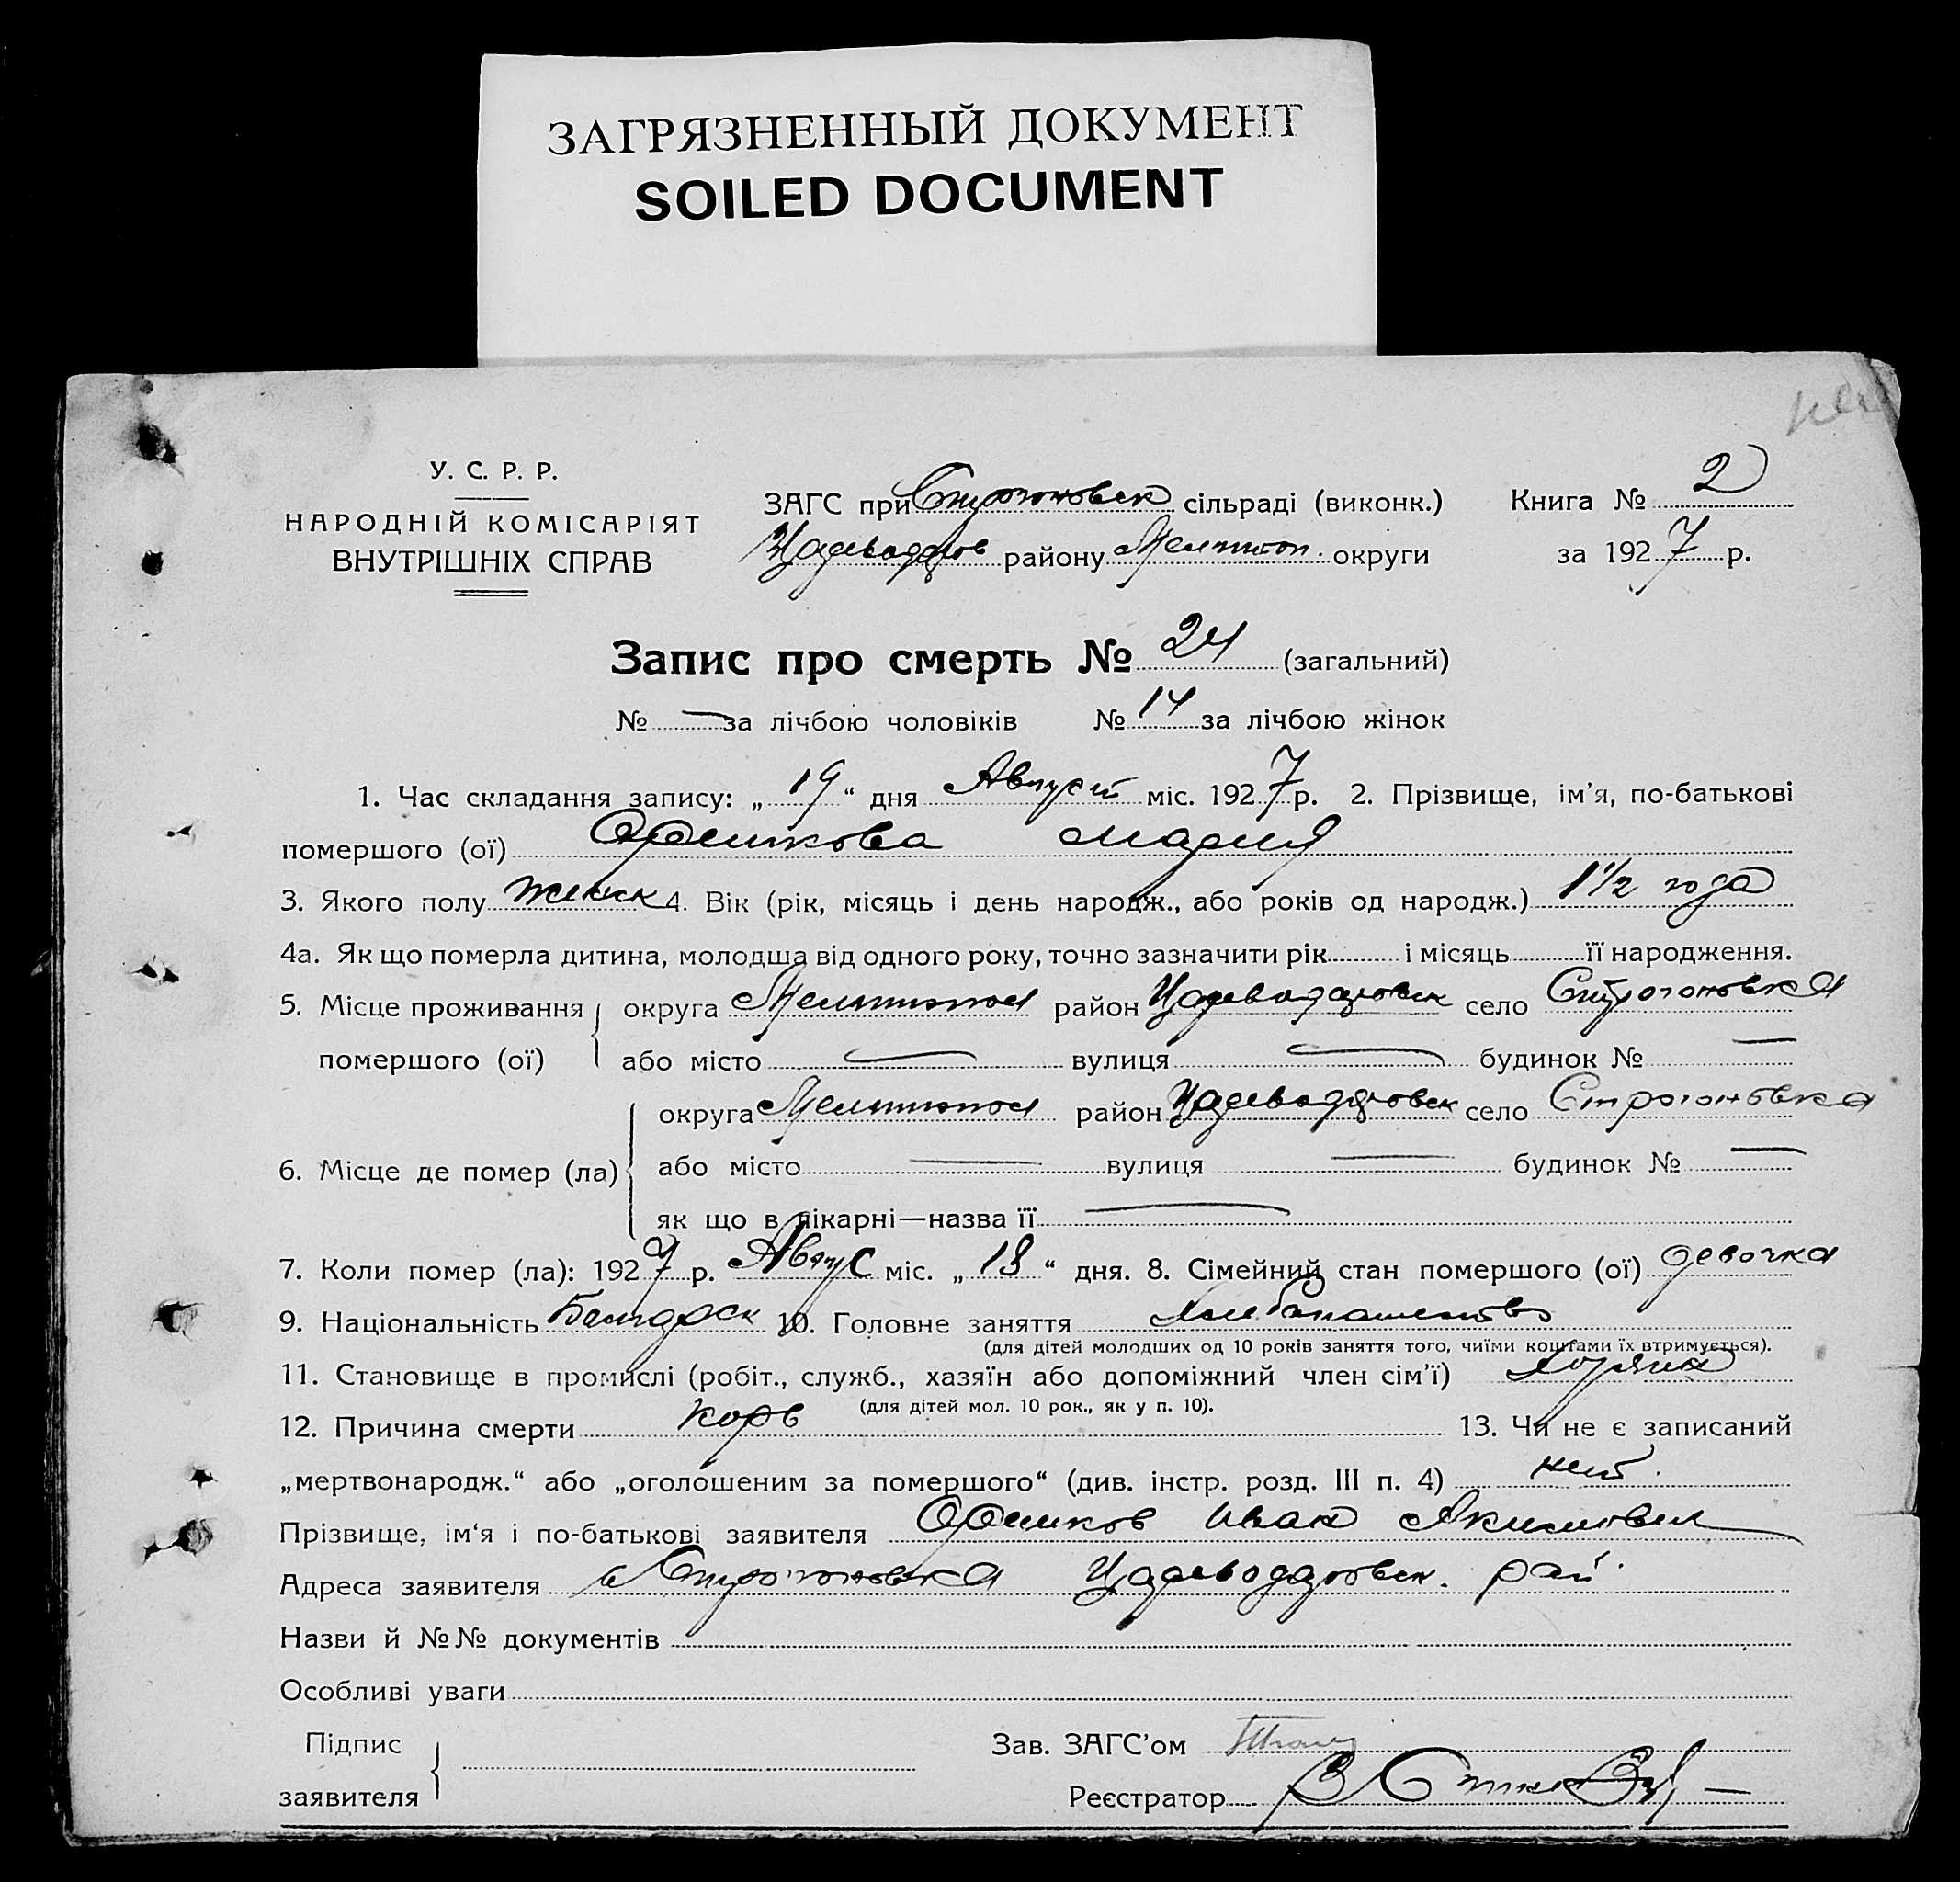 ЗАГРЯЗНЕННЫЙ ДОКУМЕНТ
SOILED DOCUMENT
У. С. Р. Р.
НАРОДНІЙ КОМІСАРІЯТ
ВНУТРІШНІХ СПРАВ
ЗАГС при Строгоновск сільраді (виконк.)
Цареводаров району Мелитоп. округи
Книга № 2
за 1927 р.
Запис про смерть № 24 (загальний)
№ — за лічбою чоловіків № 14 за лічбою жінок
1. Час складання запису: „19“ дня Август міс. 1927 р. 2. Прізвище, ім'я, по-батькові
помершого (ої) Орешкова Мария
3. Якого полу женск 4. Вік (рік, місяць і день народж., або років од народж.) 1 1/2 года
4а. Як що померла дитина, молодша від одного року, точно зазначити рік і місяць її народження.
5. Місце проживання округа Мелитопол район Цареводаровск село Строгоновка
помершого (ої) або місто — вулиця — будинок № —
округа Мелитопол район Цареводаровск село Строгоновка
6. Місце де помер (ла) або місто — вулиця — будинок № —
як що в лікарні—назва її —
7. Коли помер (ла): 1927 р. Авгус міс. „18“ дня. 8. Сімейний стан помершого (ої) девочка
9. Національність Болгарск 10. Головне заняття хлебопашество
(для дітей молодших од 10 років заняття того, чиїми коштами їх втримується).
11. Становище в промислі (робіт., служб., хазяїн або допоміжний член сім'ї)
(для дітей мол. 10 рок., як у п. 10).
12. Причина смерти корь 13. Чи не є записаний
„мертвонародж.“ або „оголошеним за помершого“ (див. інстр. розд. III п. 4) нет.
Прізвище, ім'я і по-батькові заявителя Орешков Иван Якимович
Адреса заявителя с Строгоновка Цареводаровск. рай.
Назви й №№ документів
Особливі уваги
Підпис
заявителя
Зав. ЗАГС'ом
Реєстратор